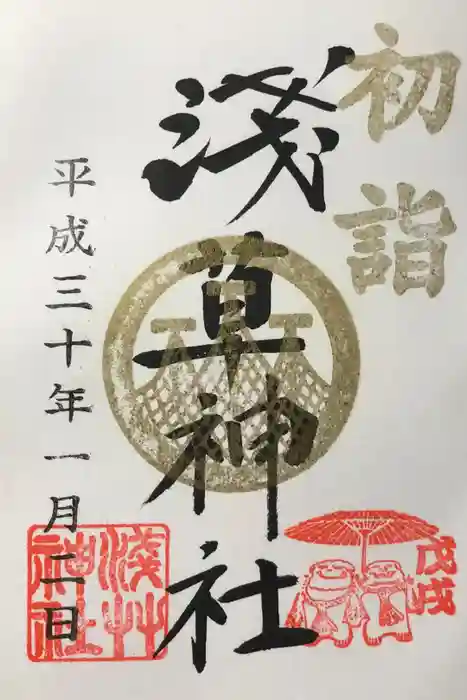 初詣
浅草神社
平成三十年一月二日
戊戌
淺艸
神社